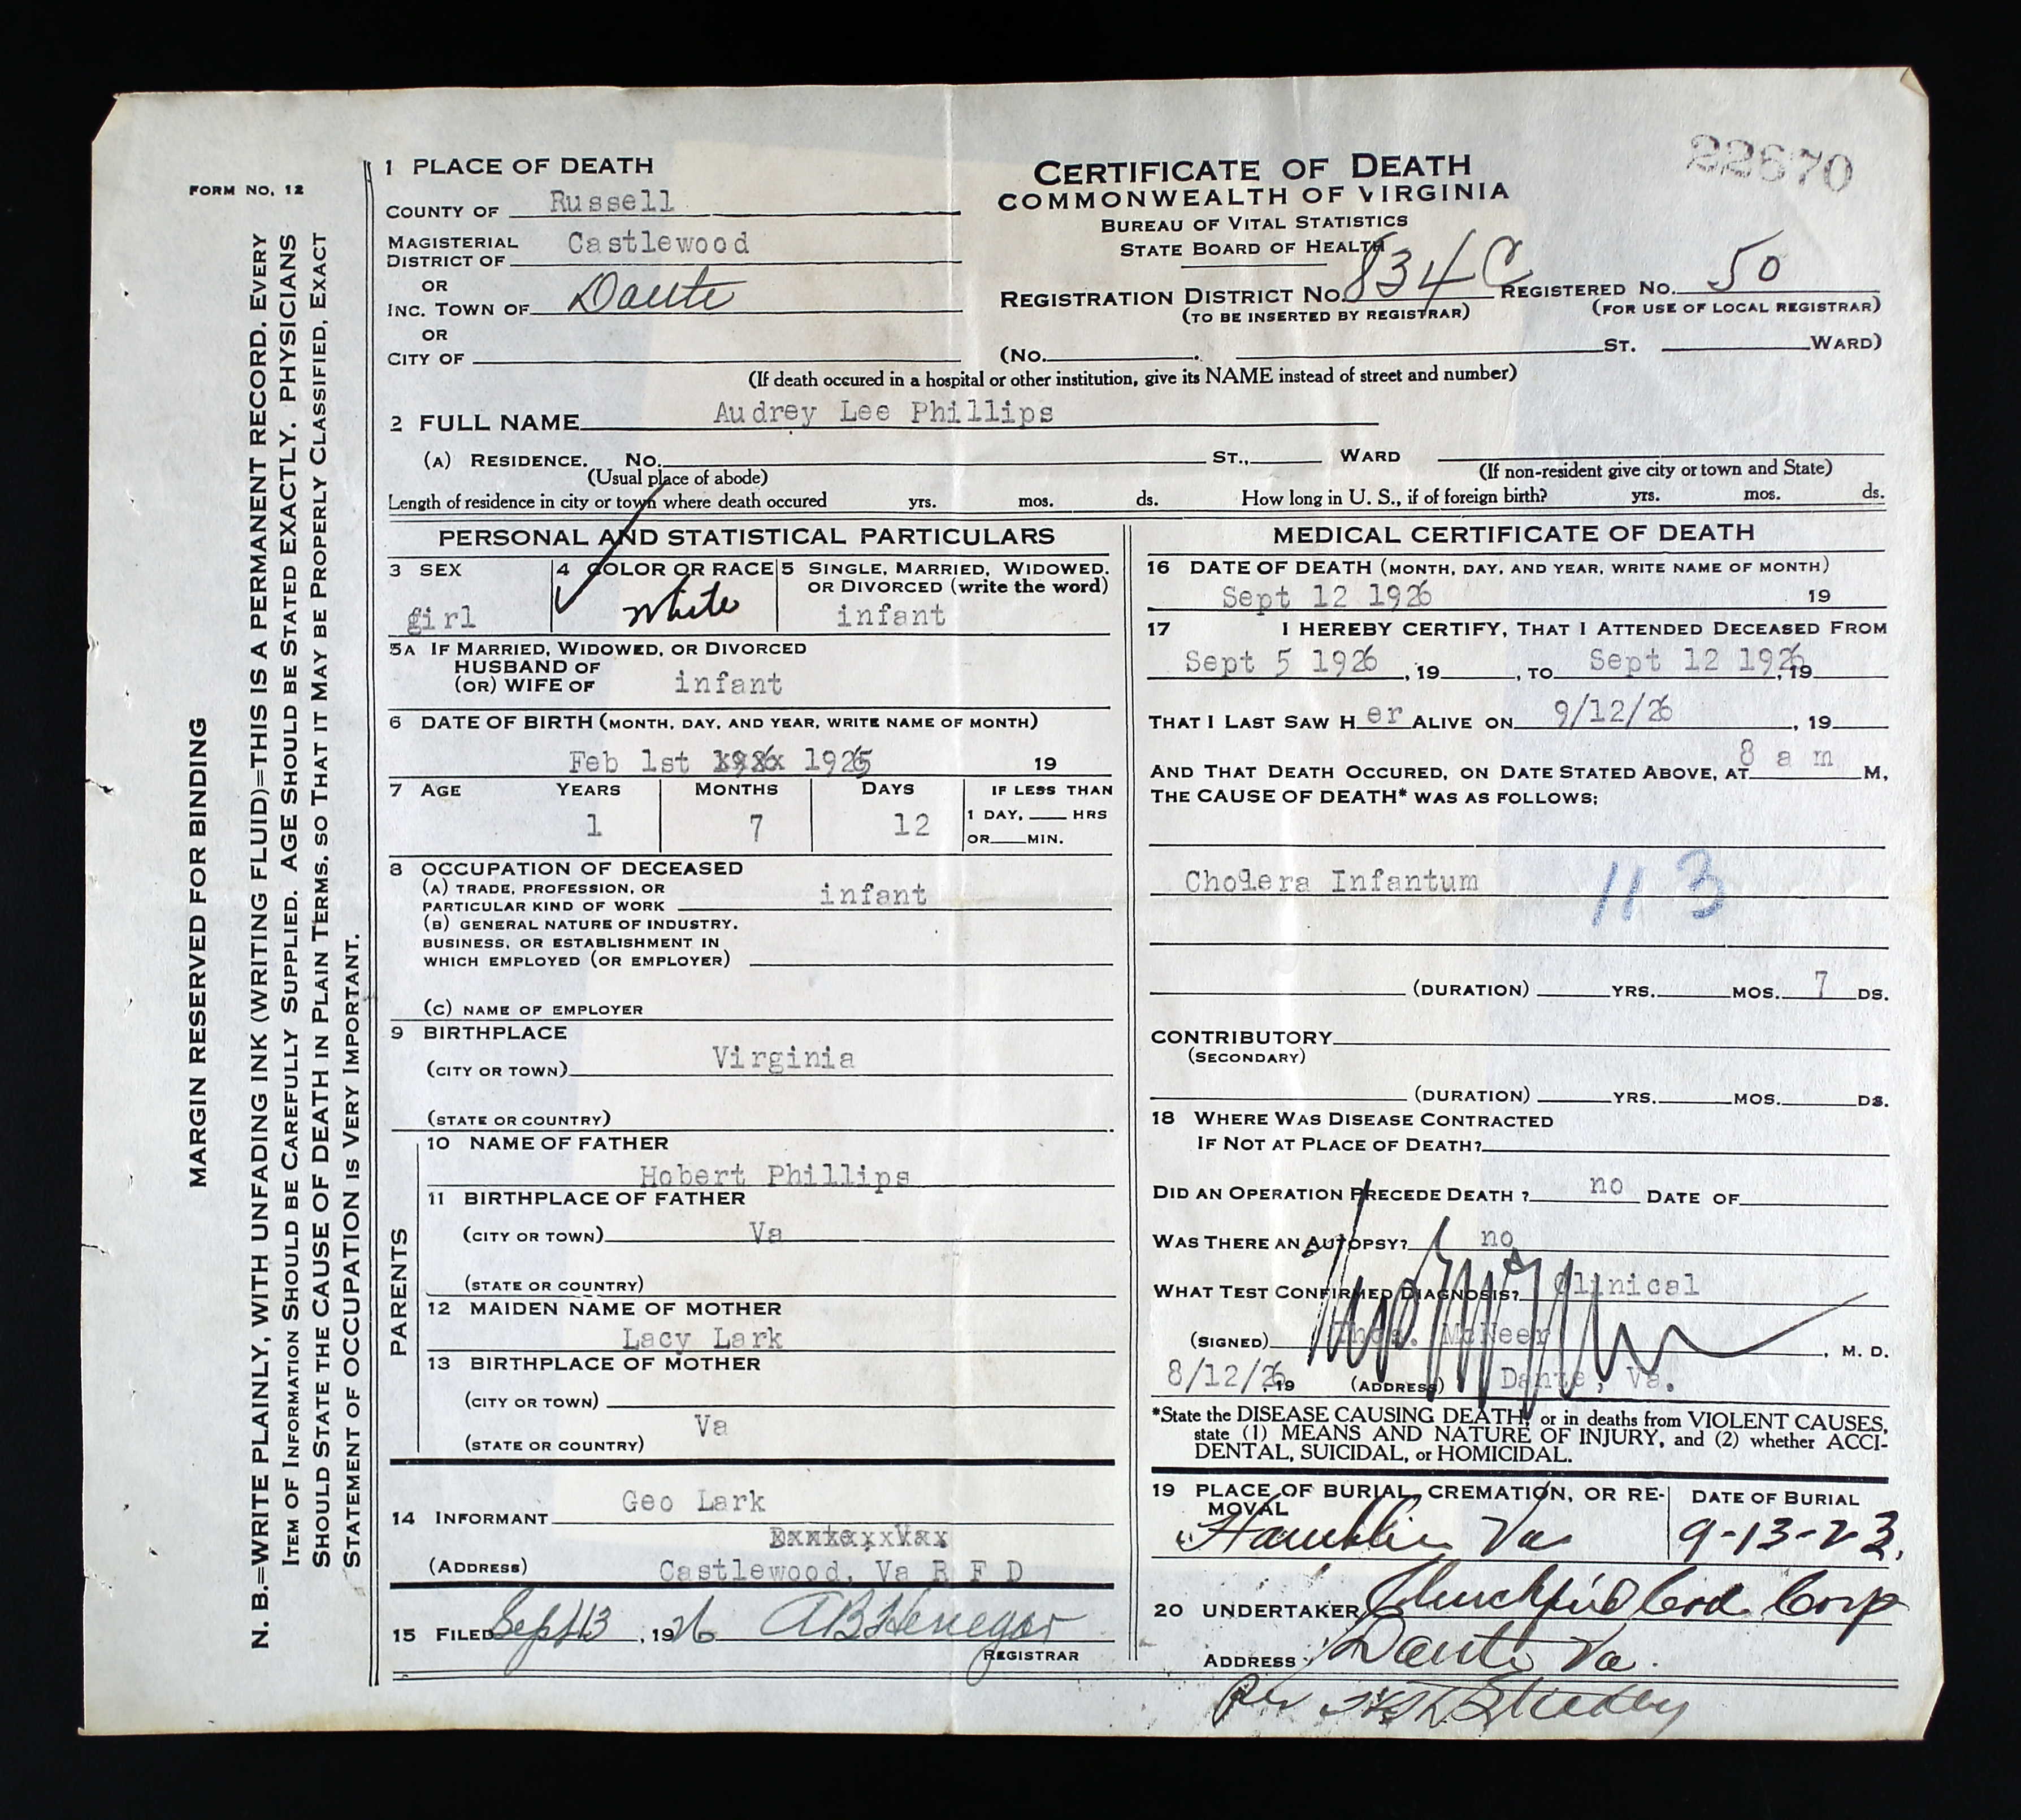 FORM NO. 12
MARGIN RESERVED FOR BINDING
N. B.=WRITE PLAINLY, WITH UNFADING INK (WRITING FLUID)=THIS IS A PERMANENT RECORD. EVERY
ITEM OF INFORMATION SHOULD BE CAREFULLY SUPPLIED. AGE SHOULD BE STATED EXACTLY. PHYSICIANS
SHOULD STATE THE CAUSE OF DEATH IN PLAIN TERMS, SO THAT IT MAY BE PROPERLY CLASSIFIED, EXACT
STATEMENT OF OCCUPATION IS VERY IMPORTANT.
22870
CERTIFICATE OF DEATH
COMMONWEALTH OF VIRGINIA
BUREAU OF VITAL STATISTICS
STATE BOARD OF HEALTH
1 PLACE OF DEATH
COUNTY OF Russell
MAGISTERIAL DISTRICT OF Castlewood
OR
INC. TOWN OF Dante
OR
CITY OF
REGISTRATION DISTRICT NO. 834C REGISTERED NO. 50
(TO BE INSERTED BY REGISTRAR) (FOR USE OF LOCAL REGISTRAR)
(No. . ST. WARD)
(If death occured in a hospital or other institution, give its NAME instead of street and number)
2 FULL NAME Audrey Lee Phillips
(A) RESIDENCE. No. ST., WARD
(Usual place of abode) (If non-resident give city or town and State)
Length of residence in city or town where death occured yrs. mos. ds. How long in U. S., if of foreign birth? yrs. mos. ds.
PERSONAL AND STATISTICAL PARTICULARS
3 SEX 4 COLOR OR RACE 5 SINGLE, MARRIED, WIDOWED, OR DIVORCED (write the word)
girl White infant
5A IF MARRIED, WIDOWED, OR DIVORCED
HUSBAND OF
(OR) WIFE OF infant
6 DATE OF BIRTH (MONTH, DAY, AND YEAR, WRITE NAME OF MONTH)
Feb 1st 1925 19
7 AGE YEARS MONTHS DAYS IF LESS THAN
1 7 12 1 DAY, HRS
OR MIN.
8 OCCUPATION OF DECEASED
(A) TRADE, PROFESSION, OR
PARTICULAR KIND OF WORK infant
(B) GENERAL NATURE OF INDUSTRY,
BUSINESS, OR ESTABLISHMENT IN
WHICH EMPLOYED (OR EMPLOYER)
(C) NAME OF EMPLOYER
9 BIRTHPLACE
(CITY OR TOWN) Virginia
(STATE OR COUNTRY)
PARENTS
10 NAME OF FATHER
Hobert Phillips
11 BIRTHPLACE OF FATHER
(CITY OR TOWN) Va
(STATE OR COUNTRY)
12 MAIDEN NAME OF MOTHER
Lacy Lark
13 BIRTHPLACE OF MOTHER
(CITY OR TOWN)
(STATE OR COUNTRY) Va
14 INFORMANT Geo Lark
(ADDRESS) Castlewood, Va R F D
15 FILED Sept 13, 1926 AB Henegar
REGISTRAR
MEDICAL CERTIFICATE OF DEATH
16 DATE OF DEATH (MONTH, DAY, AND YEAR, WRITE NAME OF MONTH)
Sept 12 1926 19
17 I HEREBY CERTIFY, THAT I ATTENDED DECEASED FROM
Sept 5 1926, 19 , TO Sept 12 1926, 19
THAT I LAST SAW H er ALIVE ON 9/12/26 , 19
AND THAT DEATH OCCURED, ON DATE STATED ABOVE, AT 8 a m M,
THE CAUSE OF DEATH* WAS AS FOLLOWS;
Cholera Infantum 113
(DURATION) YRS. MOS. 7 DS.
CONTRIBUTORY
(SECONDARY)
(DURATION) YRS. MOS. DS.
18 WHERE WAS DISEASE CONTRACTED
IF NOT AT PLACE OF DEATH?
DID AN OPERATION PRECEDE DEATH ? no DATE OF
WAS THERE AN AUTOPSY? no
WHAT TEST CONFIRMED DIAGNOSIS? Clinical
(SIGNED) Thos. McNeer , M. D.
8/12/26, 19 (ADDRESS) Dante, Va.
*State the DISEASE CAUSING DEATH, or in deaths from VIOLENT CAUSES,
state (1) MEANS AND NATURE OF INJURY, and (2) whether ACCI-
DENTAL, SUICIDAL, or HOMICIDAL.
19 PLACE OF BURIAL, CREMATION, OR RE-
MOVAL
DATE OF BURIAL
Hamblin Va 9-13-23.
20 UNDERTAKER Clinchfield Coal Corp
ADDRESS Dante Va.
Per